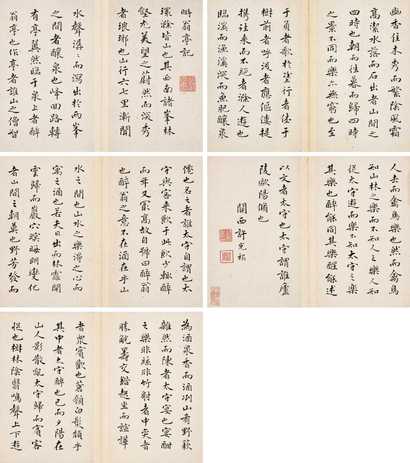 醉翁亭記
環滁皆山也其西南諸峯林
壑尤美望之蔚然而深秀
者瑯琊也山行六七里漸聞
水聲潺潺而瀉出于兩峯
之間者釀泉也峰回路轉
有亭翼然臨于泉上者醉
翁亭也作亭者誰山之僧智
僊也名之者誰太守自謂也太
守與客來飲於此飲少輒醉
而年又冣高故自號曰醉翁
也醉翁之意不在酒在乎山
水之間也山水之樂得之心而
寓之酒也若夫日出而林霏開
雲歸而巖穴暝晦明變化
者山間之朝暮也野芳發而
幽香佳木秀而繁陰風霜
高潔水落而石出者山間之
四時也朝而往暮而歸四時
之景不同而樂亦無窮也至
于負者歌於塗行者休于
樹前者呼後者應傴僂提
攜往來而不絕者滁人遊也
臨溪而漁溪深而魚肥釀泉
為酒泉香而酒洌山肴野蔌
雜然而陳者太守宴也宴酣
之樂非絲非竹射者中奕者
勝觥籌交錯起坐而諠譁
者衆賓歡也蒼顏白髮頹乎
其中者太守醉也已而夕陽在
山人影散亂太守歸而賓客
從也樹林陰翳鳴聲上下遊
人去而禽鳥樂也然而禽鳥
知山林之樂而不知人之樂人知
從太守遊而樂不知太守之樂
其樂也醉能同其樂醒能述
以文者太守也太守謂誰廬
陵歐陽脩也
關西許光祚